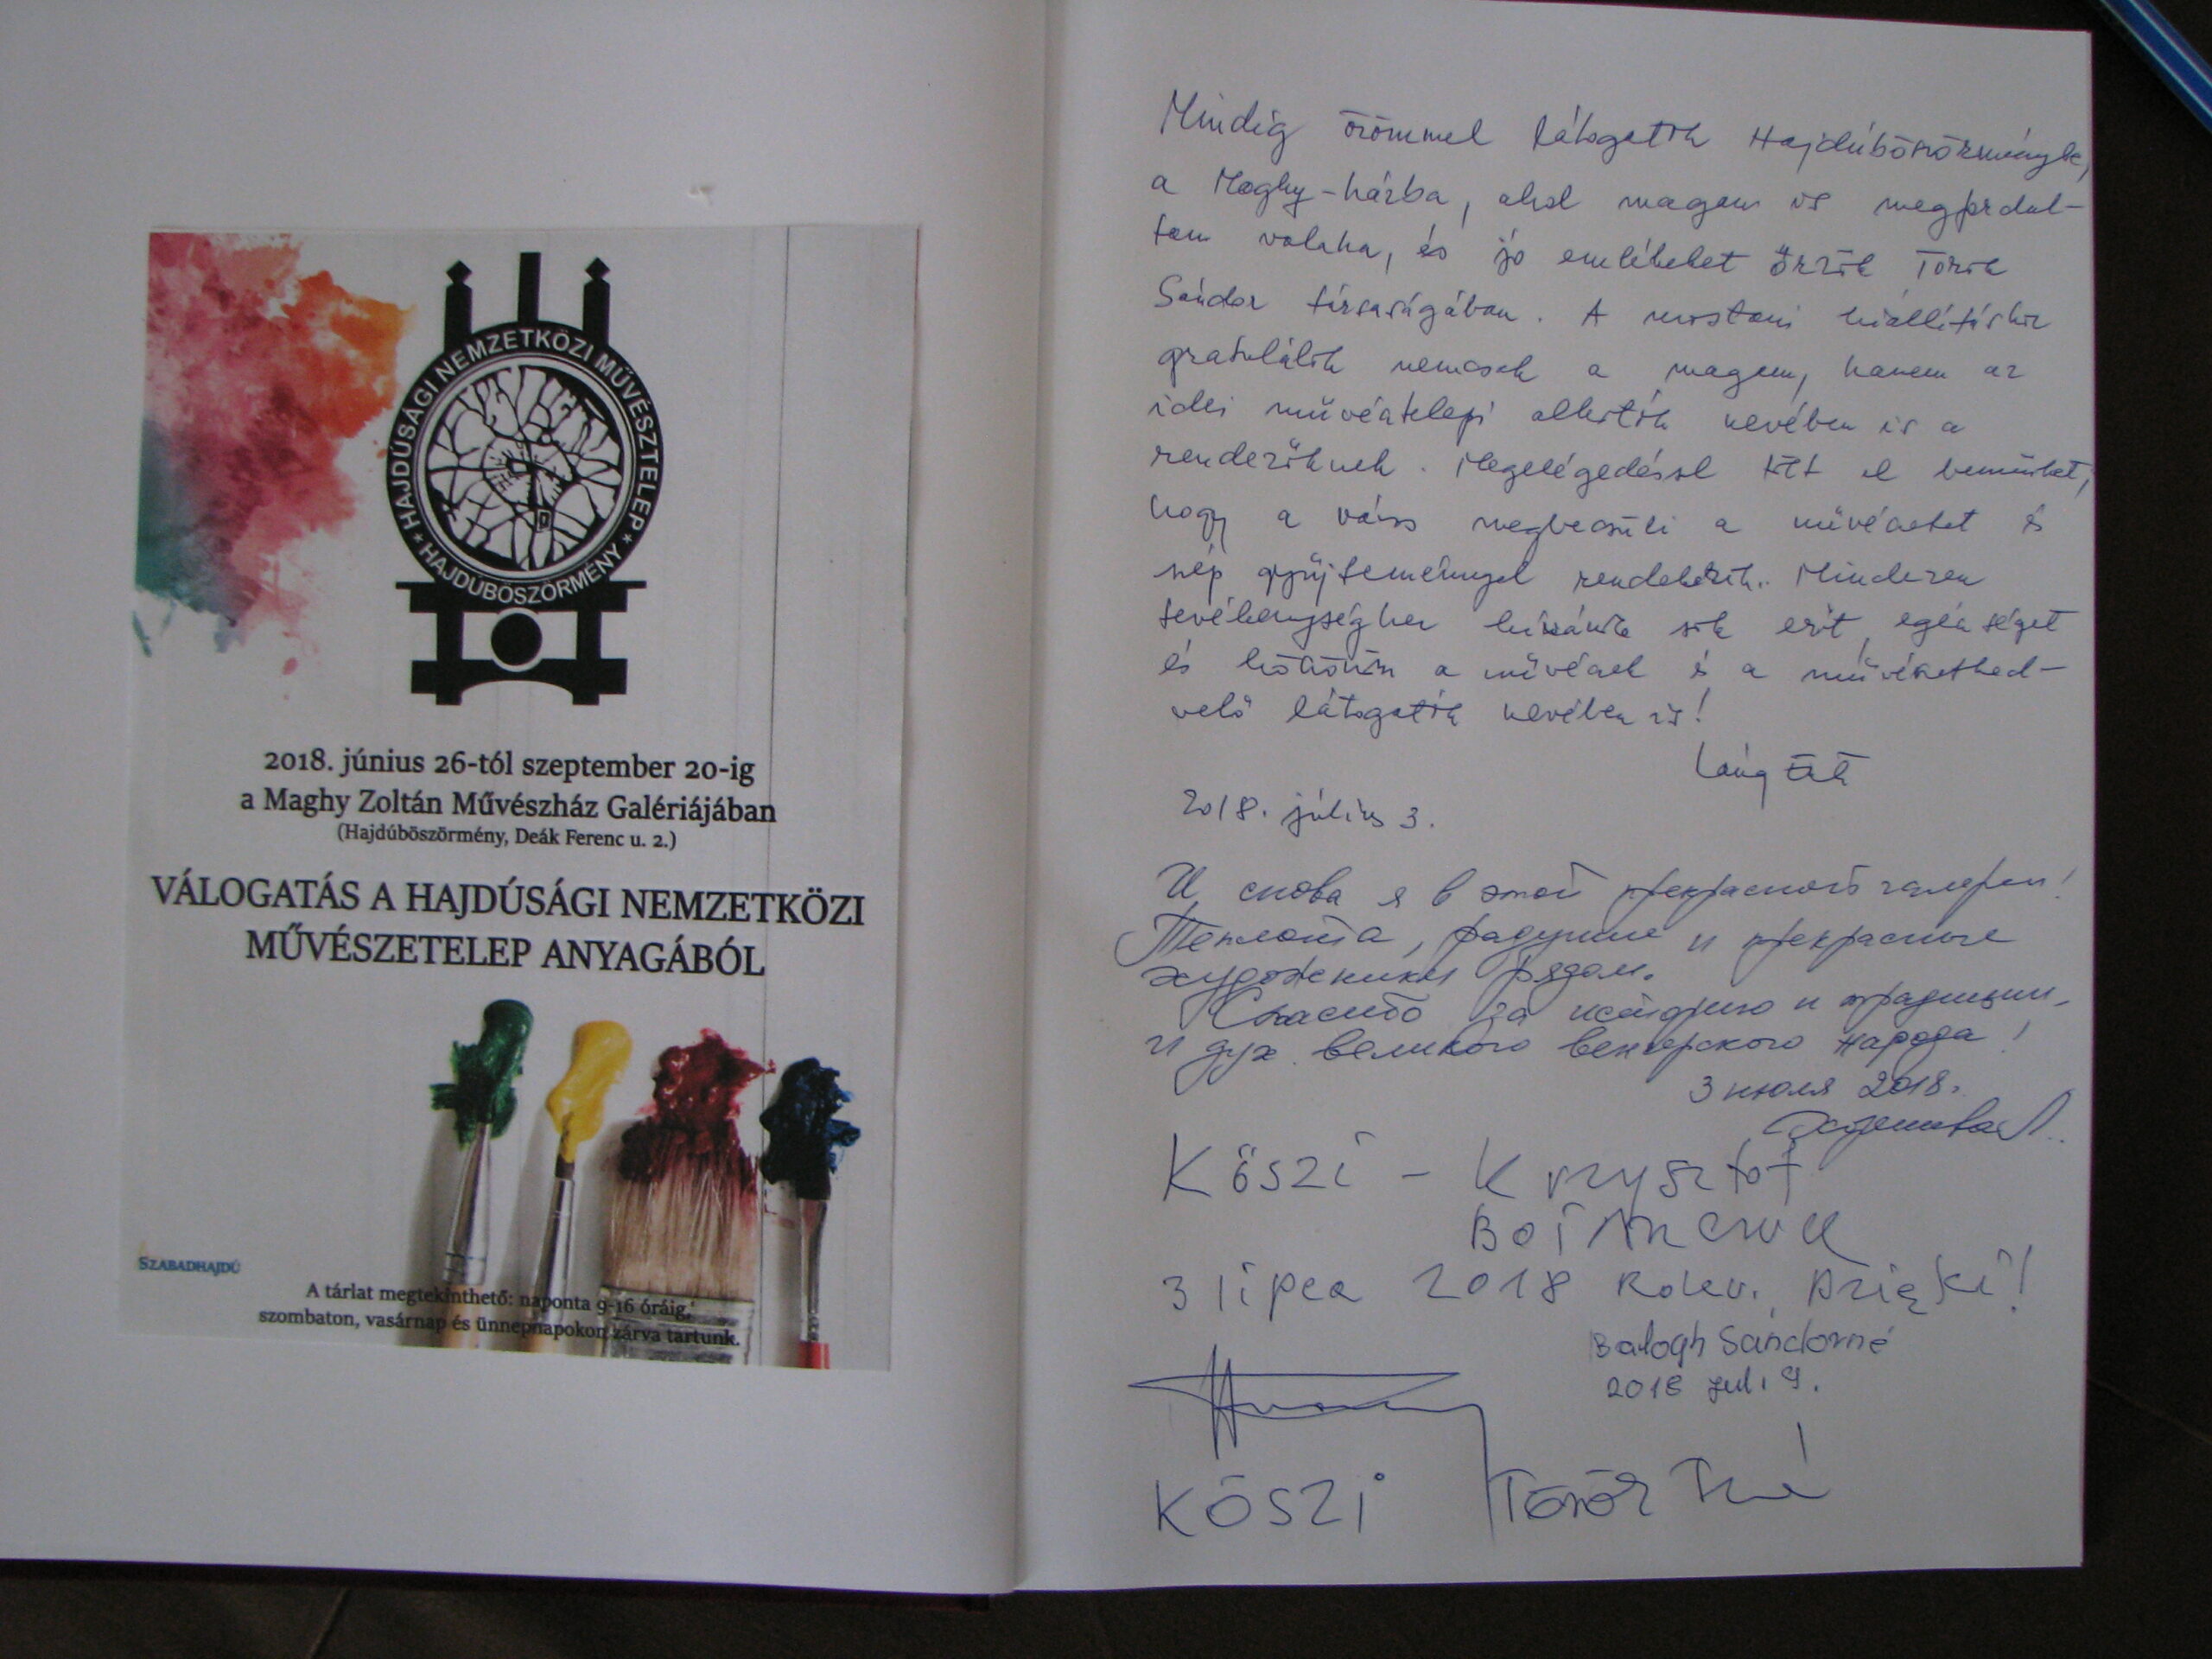 HAJDÚSÁGI NEMZETKÖZI MŰVÉSZTELEP
* HAJDUBÖSZÖRMÉNY *
2018. június 26-tól szeptember 20-ig
a Maghy Zoltán Művészház Galériájában
(Hajdúböszörmény, Deák Ferenc u. 2.)
VÁLOGATÁS A HAJDÚSÁGI NEMZETKÖZI
MŰVÉSZETELEP ANYAGÁBÓL
SZABADHAJDÚ
A tárlat megtekinthető: naponta 9-16 óráig,
szombaton, vasárnap és ünnepnapokon zárva tartunk.
Mindig örömmel látogatok Hajdúböszörménybe,
a Maghy-házba, ahol magam is megfordul-
tam valaha, és jó emlékeket őrzök Török
Sándor társaságában. A mostani kiállításhoz
gratulálok nemcsak a magam, hanem az
idei művésztelepi alkotók nevében is a
rendezőknek. Megelégedéssel tölt el bennünket,
hogy a város megbecsüli a művészetet és
szép gyűjteménnyel rendelkezik. Minderen
tevékenységhez kívánok sok erőt, egészséget
és köszönöm a művészek és a művészetked-
velő látogatók nevében is!
Láng
2018. július 3.
И снова я в этой прекрасной галереи!
Теплота, радушие и прекрасные
художники рядом.
Спасибо за историю и традиции,
и дух великого венгерского народа!
3 июля 2018.
Л.
KÖSZI - Krzysztof
3 lipca 2018 Rokv. Dzięki!
Balogh Sándorné
2018 júl. 9.
KÖSZI